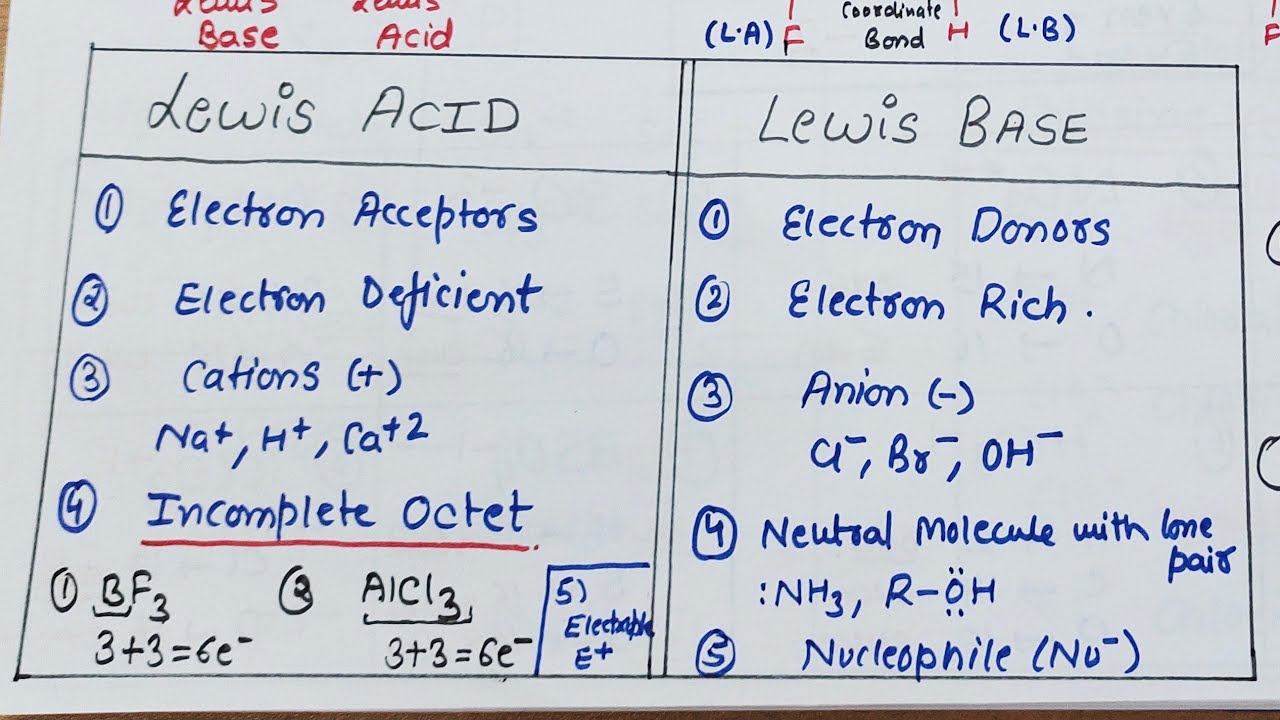 Lewis Lewis
Base Acid
(L.A) F Coordinate Bond H (L.B)
F
Lewis ACID
① Electron Acceptors
② Electron Deficient
③ Cations (+)
Na+, H+, Ca+2
④ Incomplete Octet
① BF3
3+3=6e-
② AlCl3
3+3=6e-
5)
Electrophile
E+
Lewis BASE
① Electron Donors
② Electron Rich .
③ Anion (-)
Cl-, Br-, OH-
④ Neutral Molecule with lone
pair
:NH3, R-ÖH
⑤ Nucleophile (Nu-)